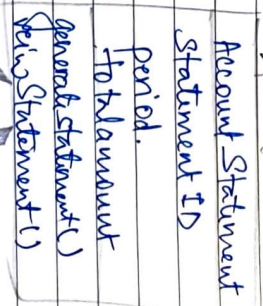 Account Statement
Statement ID
period.
Total amount
generate Statement()
Statement()